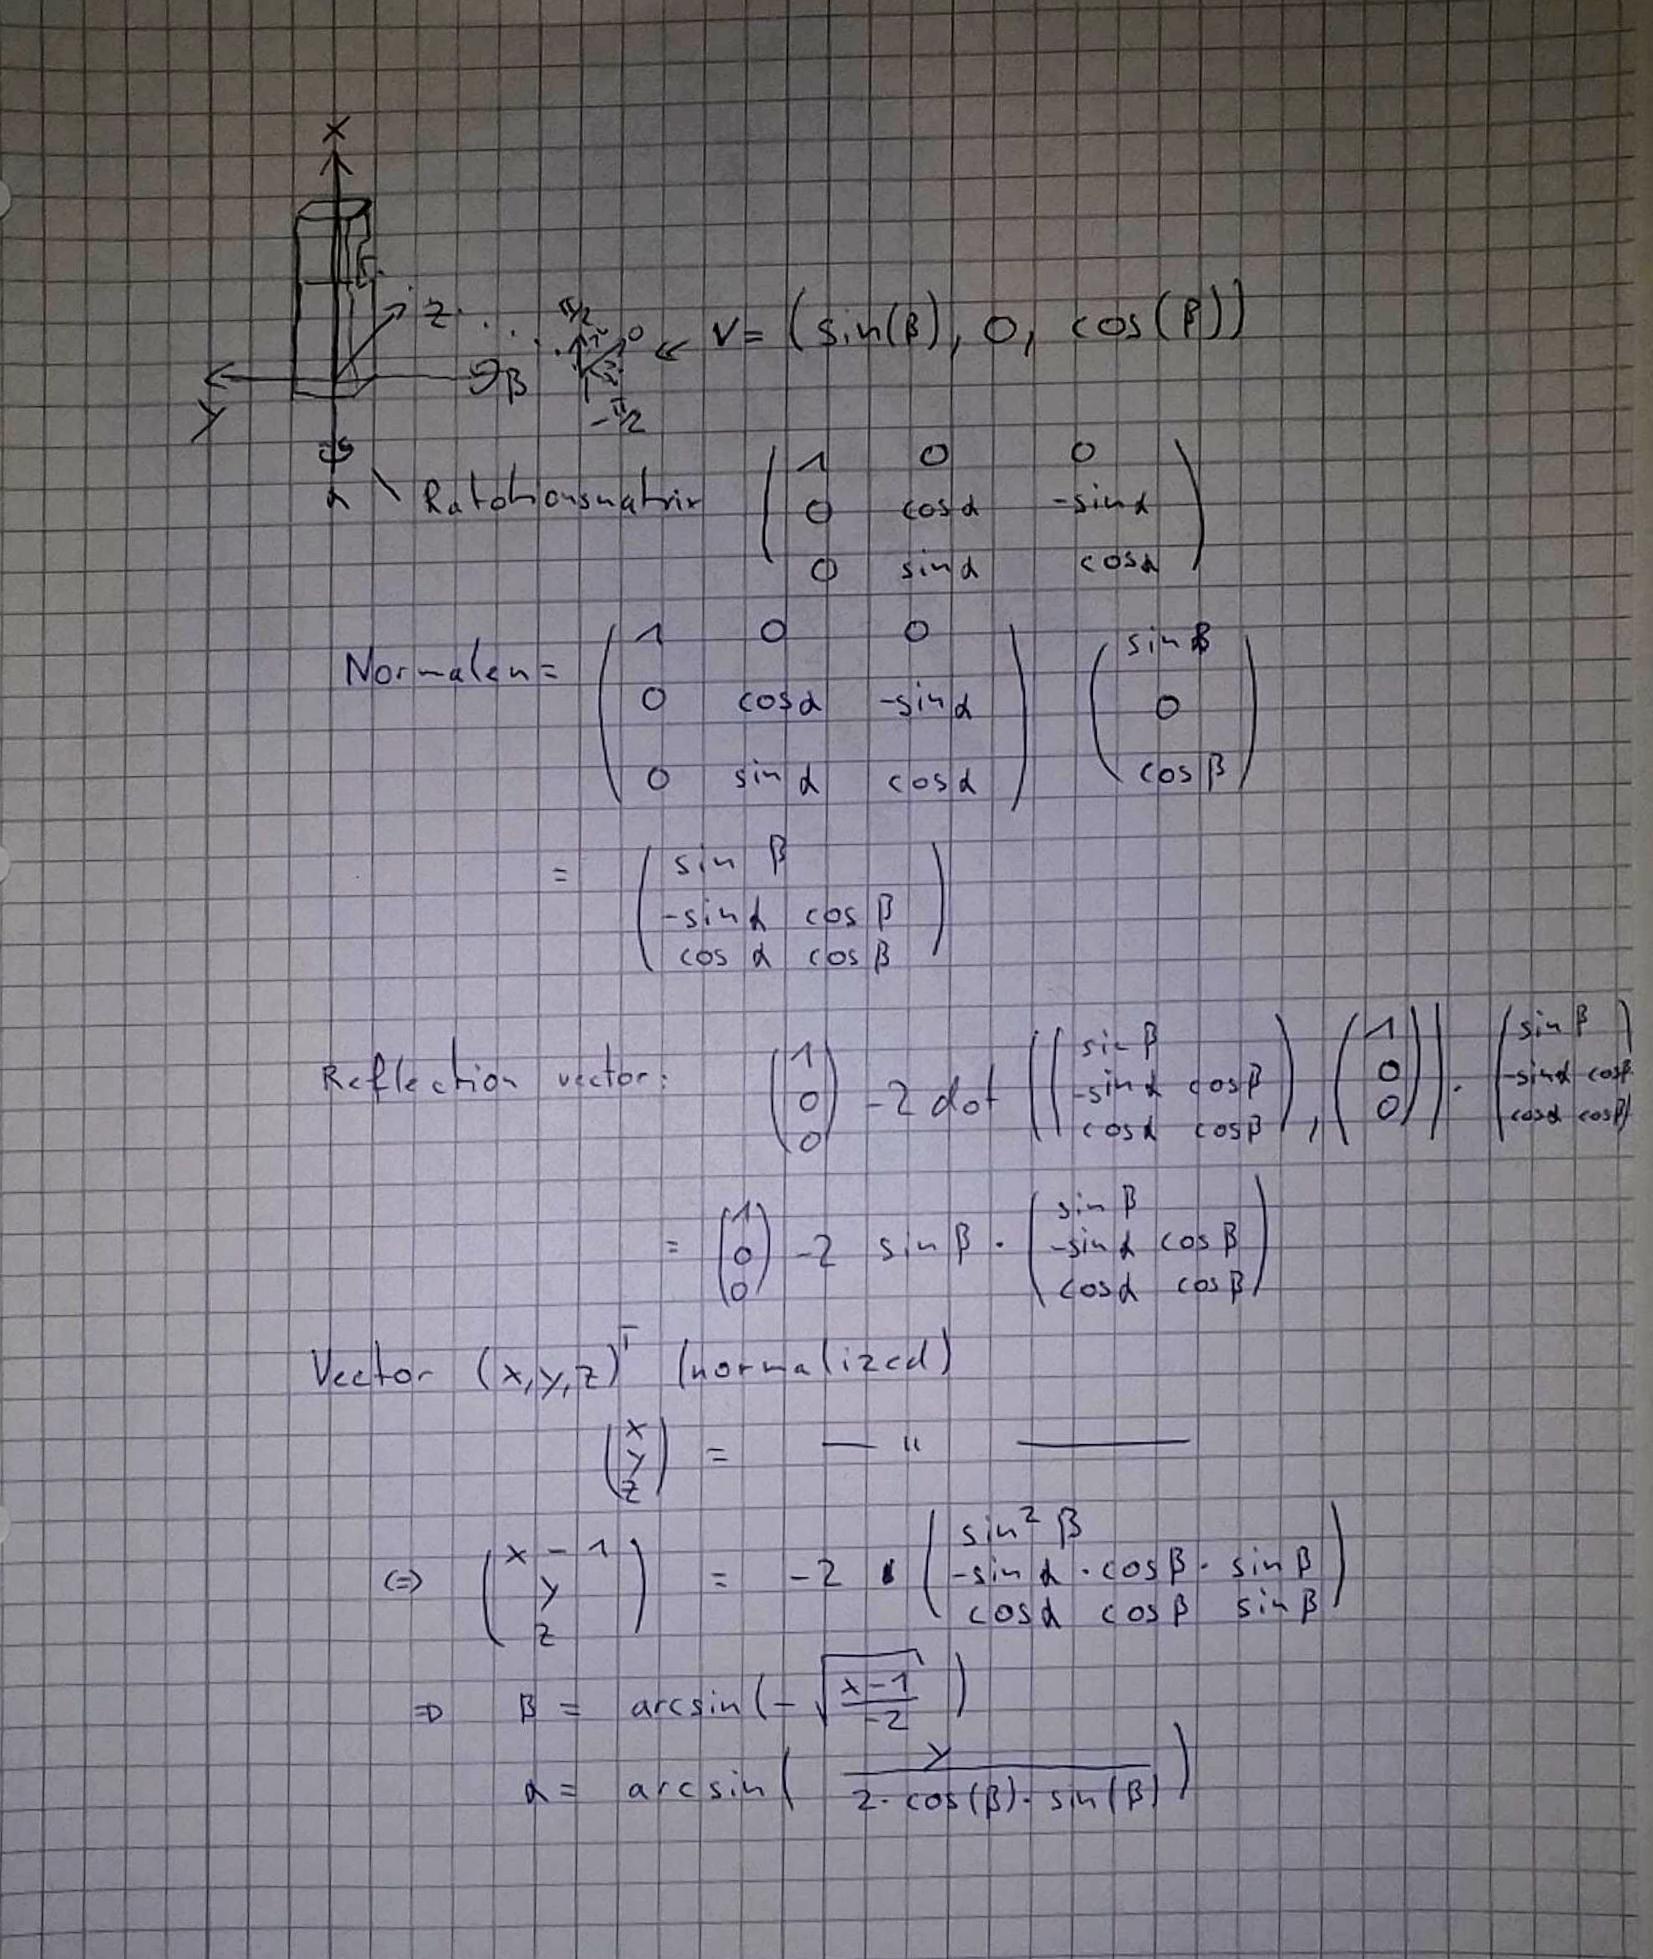 X
Z
π/2
0
← V = (sin(β), 0, cos(β))
Y
β
-π/2
α
Ratotionsmatrix ( 1 0 0
0 cosα -sinα
0 sinα cosα )
Normalen = ( 1 0 0
0 cosα -sinα
0 sinα cosα ) ( sin β
0
cos β )
= ( sin β
-sinα cos β
cos α cos β )
Reflection vector: ( 1 0 0 ) -2 dot ( ( sin β
-sinα cosβ
cosα cosβ ), ( 1 0 0 ) ) · ( sin β
-sinα cosβ
cosα cosβ )
= ( 1 0 0 ) -2 sin β · ( sin β
-sinα cos β
cosα cos β )
Vector (x,y,z)ᵀ (normalized)
( x y z ) = — " —
(=) ( x - 1
y
z ) = -2 · ( sin² β
-sinα · cosβ · sin β
cosα cos β sin β )
⇒ β = arcsin(-√((x-1)/-2))
α = arcsin( y / (2 · cos(β) · sin(β)) )